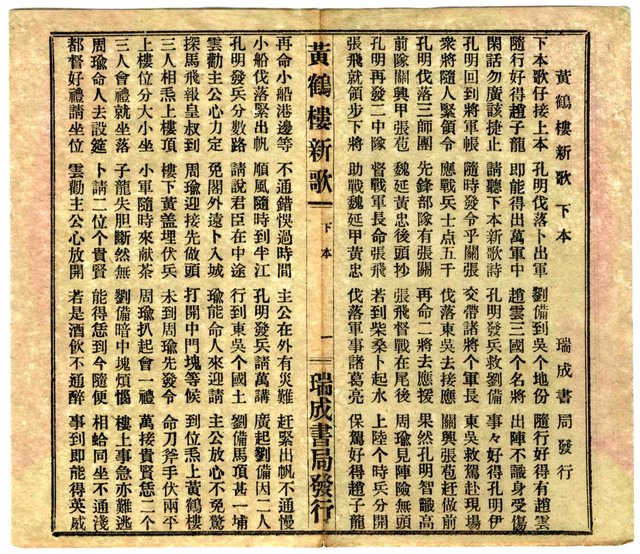 黃鶴樓新歌 下本 瑞成書局發行
下本歌仔接上本 孔明伐落卜出軍 劉備到吳个地份 隨行好得有趙雲
隨行好得趙子龍 即能得出萬軍中 趙雲三國个名將 出陣不識身受傷
閑話勿廣該捷止 請聽下本新歌詩 孔明發兵救劉備 事々好得孔明伊
孔明回到將軍帳 隨時發令乎關張 交帶諸將个軍長 東吳救駕赴現場
衆將隨人緊領令 應戰兵士点五千 伐落東吳去接應 關興張苞赶做前
孔明伐落三師團 先鋒部隊有張關 再命二將去應援 果然孔明智識高
前隊關興甲張苞 魏延黃忠後頭抄 張飛督戰在尾後 周瑜見陣險無頭
孔明再發二中隊 督戰軍長命張飛 若到柴桑卜起水 上陸个時兵分開
張飛就領步下將 助戰魏延甲黃忠 伐落軍事諸葛亮 保駕好得趙子龍
黃鶴樓新歌 下本 一 瑞成書局發行
再命小船港邊等 不通錯悞過時間 主公在外有災難 赶緊出帆不通慢
小船伐落緊出帆 順風隨時到半江 孔明發兵請萬講 廣起劉備因二人
孔明發兵分數路 請說君臣在中途 行到東吳个國土 劉備馬項甚一埔
雲勸主公心力定 免閣外遠卜入城 瑜能命人來迎請 主公放心不免驚
探馬飛報皇叔到 周瑜迎接先做頭 打開中門塊等候 到位悉上黃鶴樓
三人相悉上樓頂 樓下黃蓋埋伏兵 未到周瑜先發令 命刀斧手伏兩平
上樓位分大小坐 小軍隨時來献茶 周瑜扒起會一禮 萬接貴賢恁二个
三人會禮就坐落 子龍失胆斷然無 劉備暗中塊煩惱 樓上事急亦難逃
周瑜命人去設筵 卜請二位个貴賢 能得恁到今隨便 相蛤同坐不通淺
都督好禮請坐位 雲勸主公心放開 若是酒飲不通醉 事到即能得英威